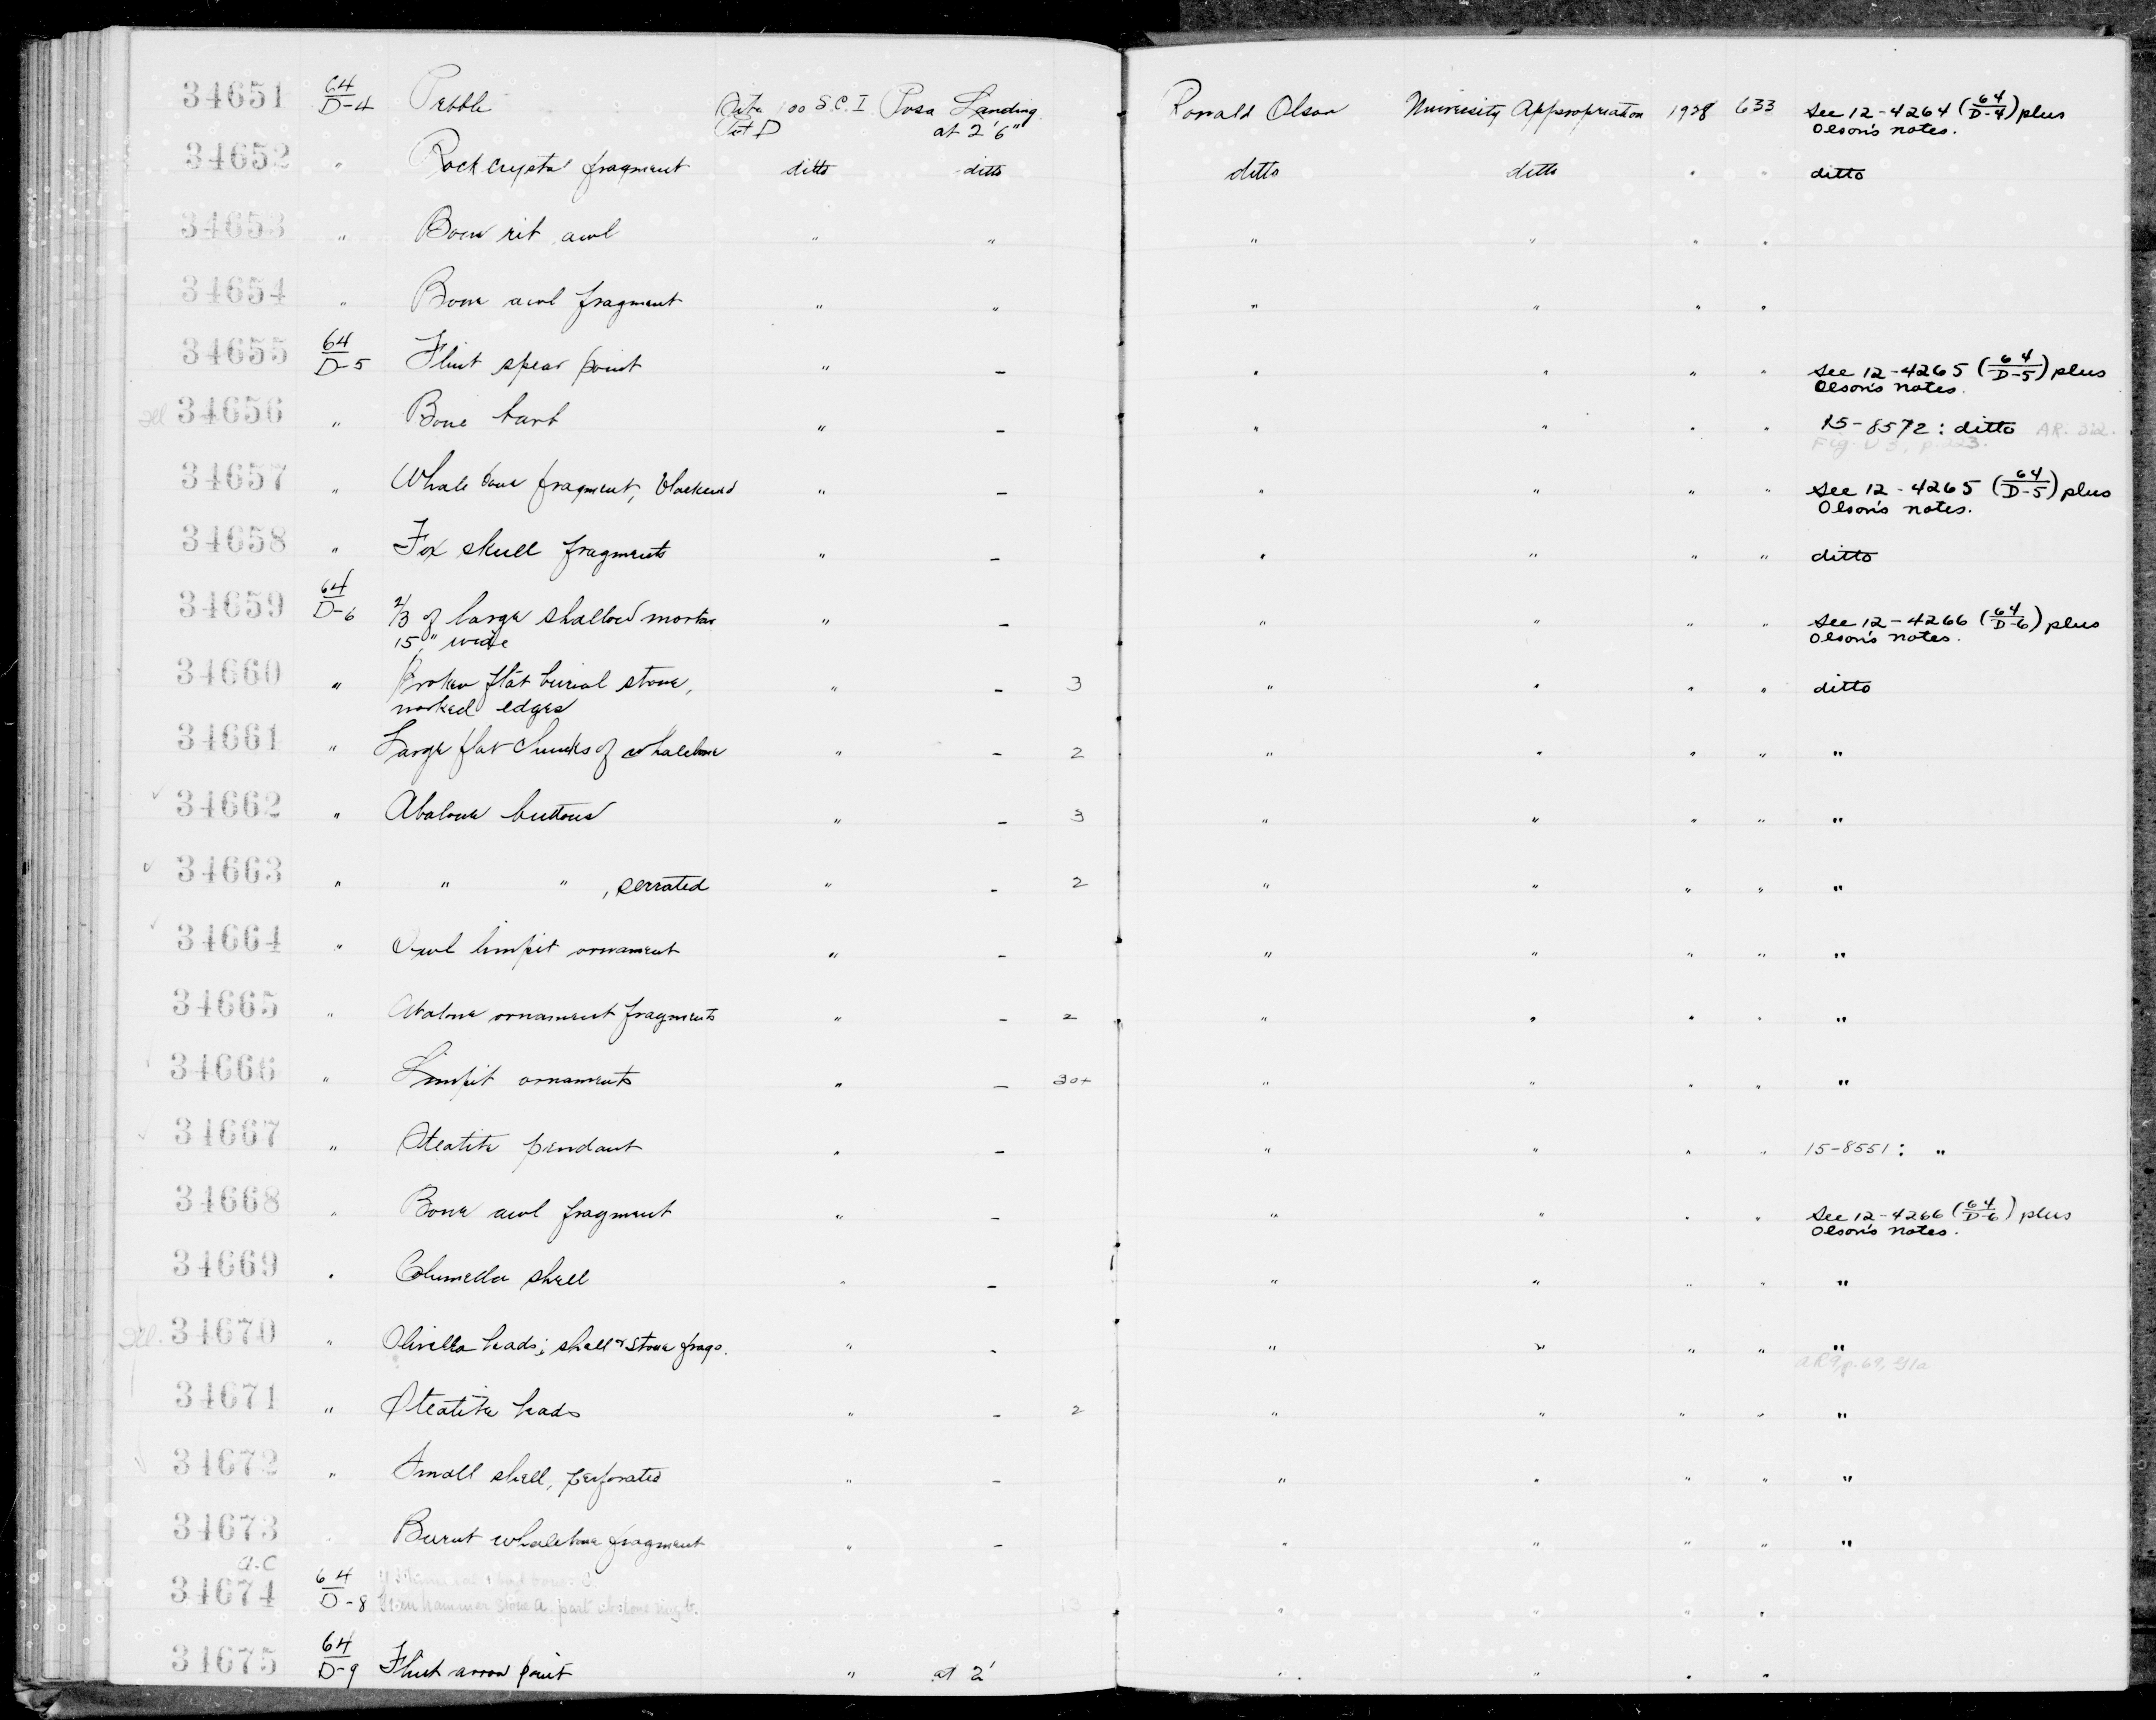 34651 64/D-4 Pebble Site 100 S.C.I. Posa Landing Ronald Olson University Appropriation 1928 633 See 12-4264 (64/D-4) plus
Pit D at 2'6" Olson's notes.
34652 " Rock crystal fragment ditto ditto ditto ditto " " ditto
34653 " Bone rib awl " " " " " "
34654 " Bone awl fragment " " " " " "
34655 64/D-5 Flint spear point " - " " " " See 12-4265 (64/D-5) plus
Olson's notes.
34656 " Bone barb " - " " " " 15-8572: ditto
34657 " Whale bone fragment, blackened " - " " " " See 12-4265 (64/D-5) plus
Olson's notes.
34658 " Fox skull fragments " - " " " " ditto
34659 64/D-6 2/3 of large shallow mortar " - " " " " See 12-4266 (64/D-6) plus
15" wide Olson's notes.
34660 " Broken flat burial stone, " - 3 " " " " ditto
worked edges
34661 " Large flat chunks of whalebone " - 2 " " " " "
34662 " Abalone buttons " - 3 " " " " "
34663 " " " , serrated " - 2 " " " " "
34664 " Owl limpit ornament " - " " " " "
34665 " Abalone ornament fragments " - 2 " " " " "
34666 " Limpit ornaments " - 30+ " " " " "
34667 " Steatite pendant " - " " " " 15-8551: "
34668 " Bone awl fragment " - " " " " See 12-4266 (64/D-6) plus
Olson's notes.
34669 " Columella shell " - " " " " "
34670 " Olivella beads; shell & stone frags. " - " " " " "
AR9, p.69, 41a
34671 " Steatite beads " - 2 " " " " "
34672 " Small shell, perforated " - " " " " "
34673 " Burnt whalebone fragment " - " " " " "
a-c
34674 64/D-8 hammer stone a. part " " " "
34675 64/D-9 Flint arrow point " at 2' " " " "